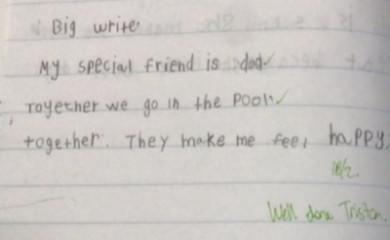 Big write
My special friend is dad
Together we go in the pool
together. They make me feel happy.
Well done Tristan.